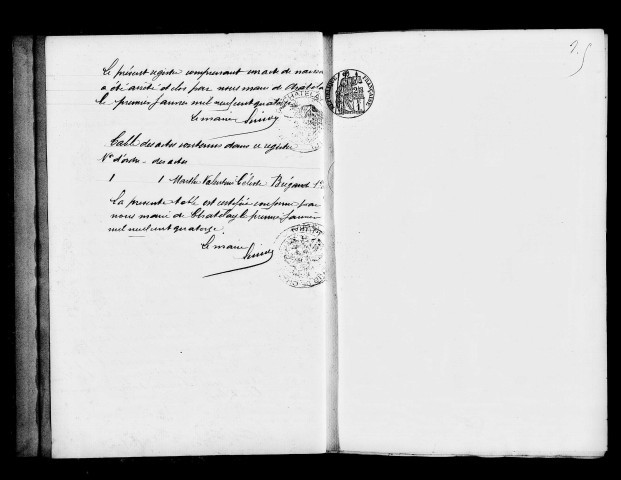 Le présent registre comprenant un acte de naissan
a été arrêté et clos par nous maire de Chatelay
le premier Janvier mil neuf cent quatorze
Le maire
CHATELAY
Table des actes contenus dans ce registre
N° d'ordre - des actes
1 1 Marthe Valentine Céleste Brégand 1er
La presente table est certifiée conforme par
nous maire de Chatelay le premier Janvier
mil neuf cent quatorze
Le maire
RÉPUBLIQUE FRANÇAISE